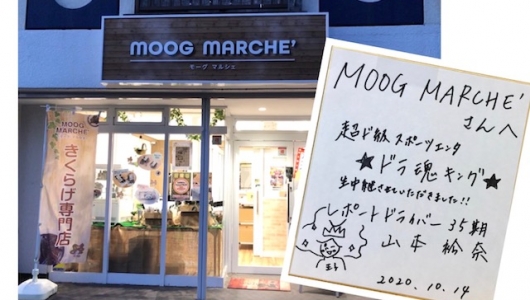 MOOG MARCHE'
モーグ マルシェ
MOOG
MARCHE'
きくらげ専門店
MOOG MARCHE'
さんへ
超ド級 スポーツエンタ
★ドラ魂キング★
生中継させていただきました!!
レポートドライバー 35期
山本 絵奈
2020.10.14